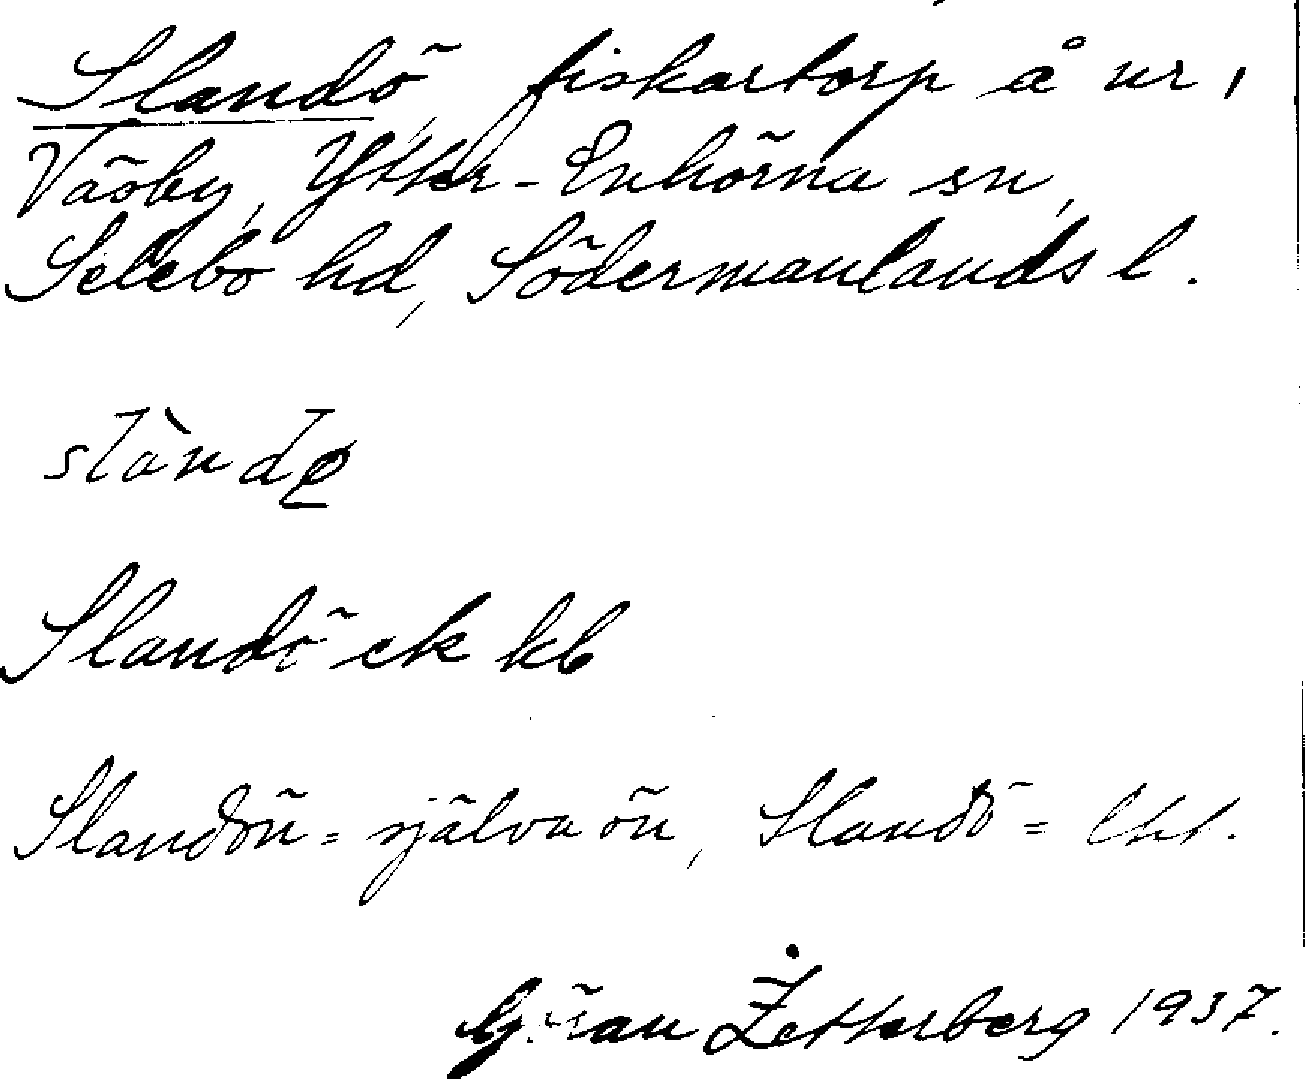 Slandö, fiskartorp å nr 1
Väsby, Ytter-Enhörna sn,
Selebo hd, Södermanlands l.
slàndø
Slandö ek kb
Slandön = själva ön, Slandö = lht.
Göran Zetterberg 1937.